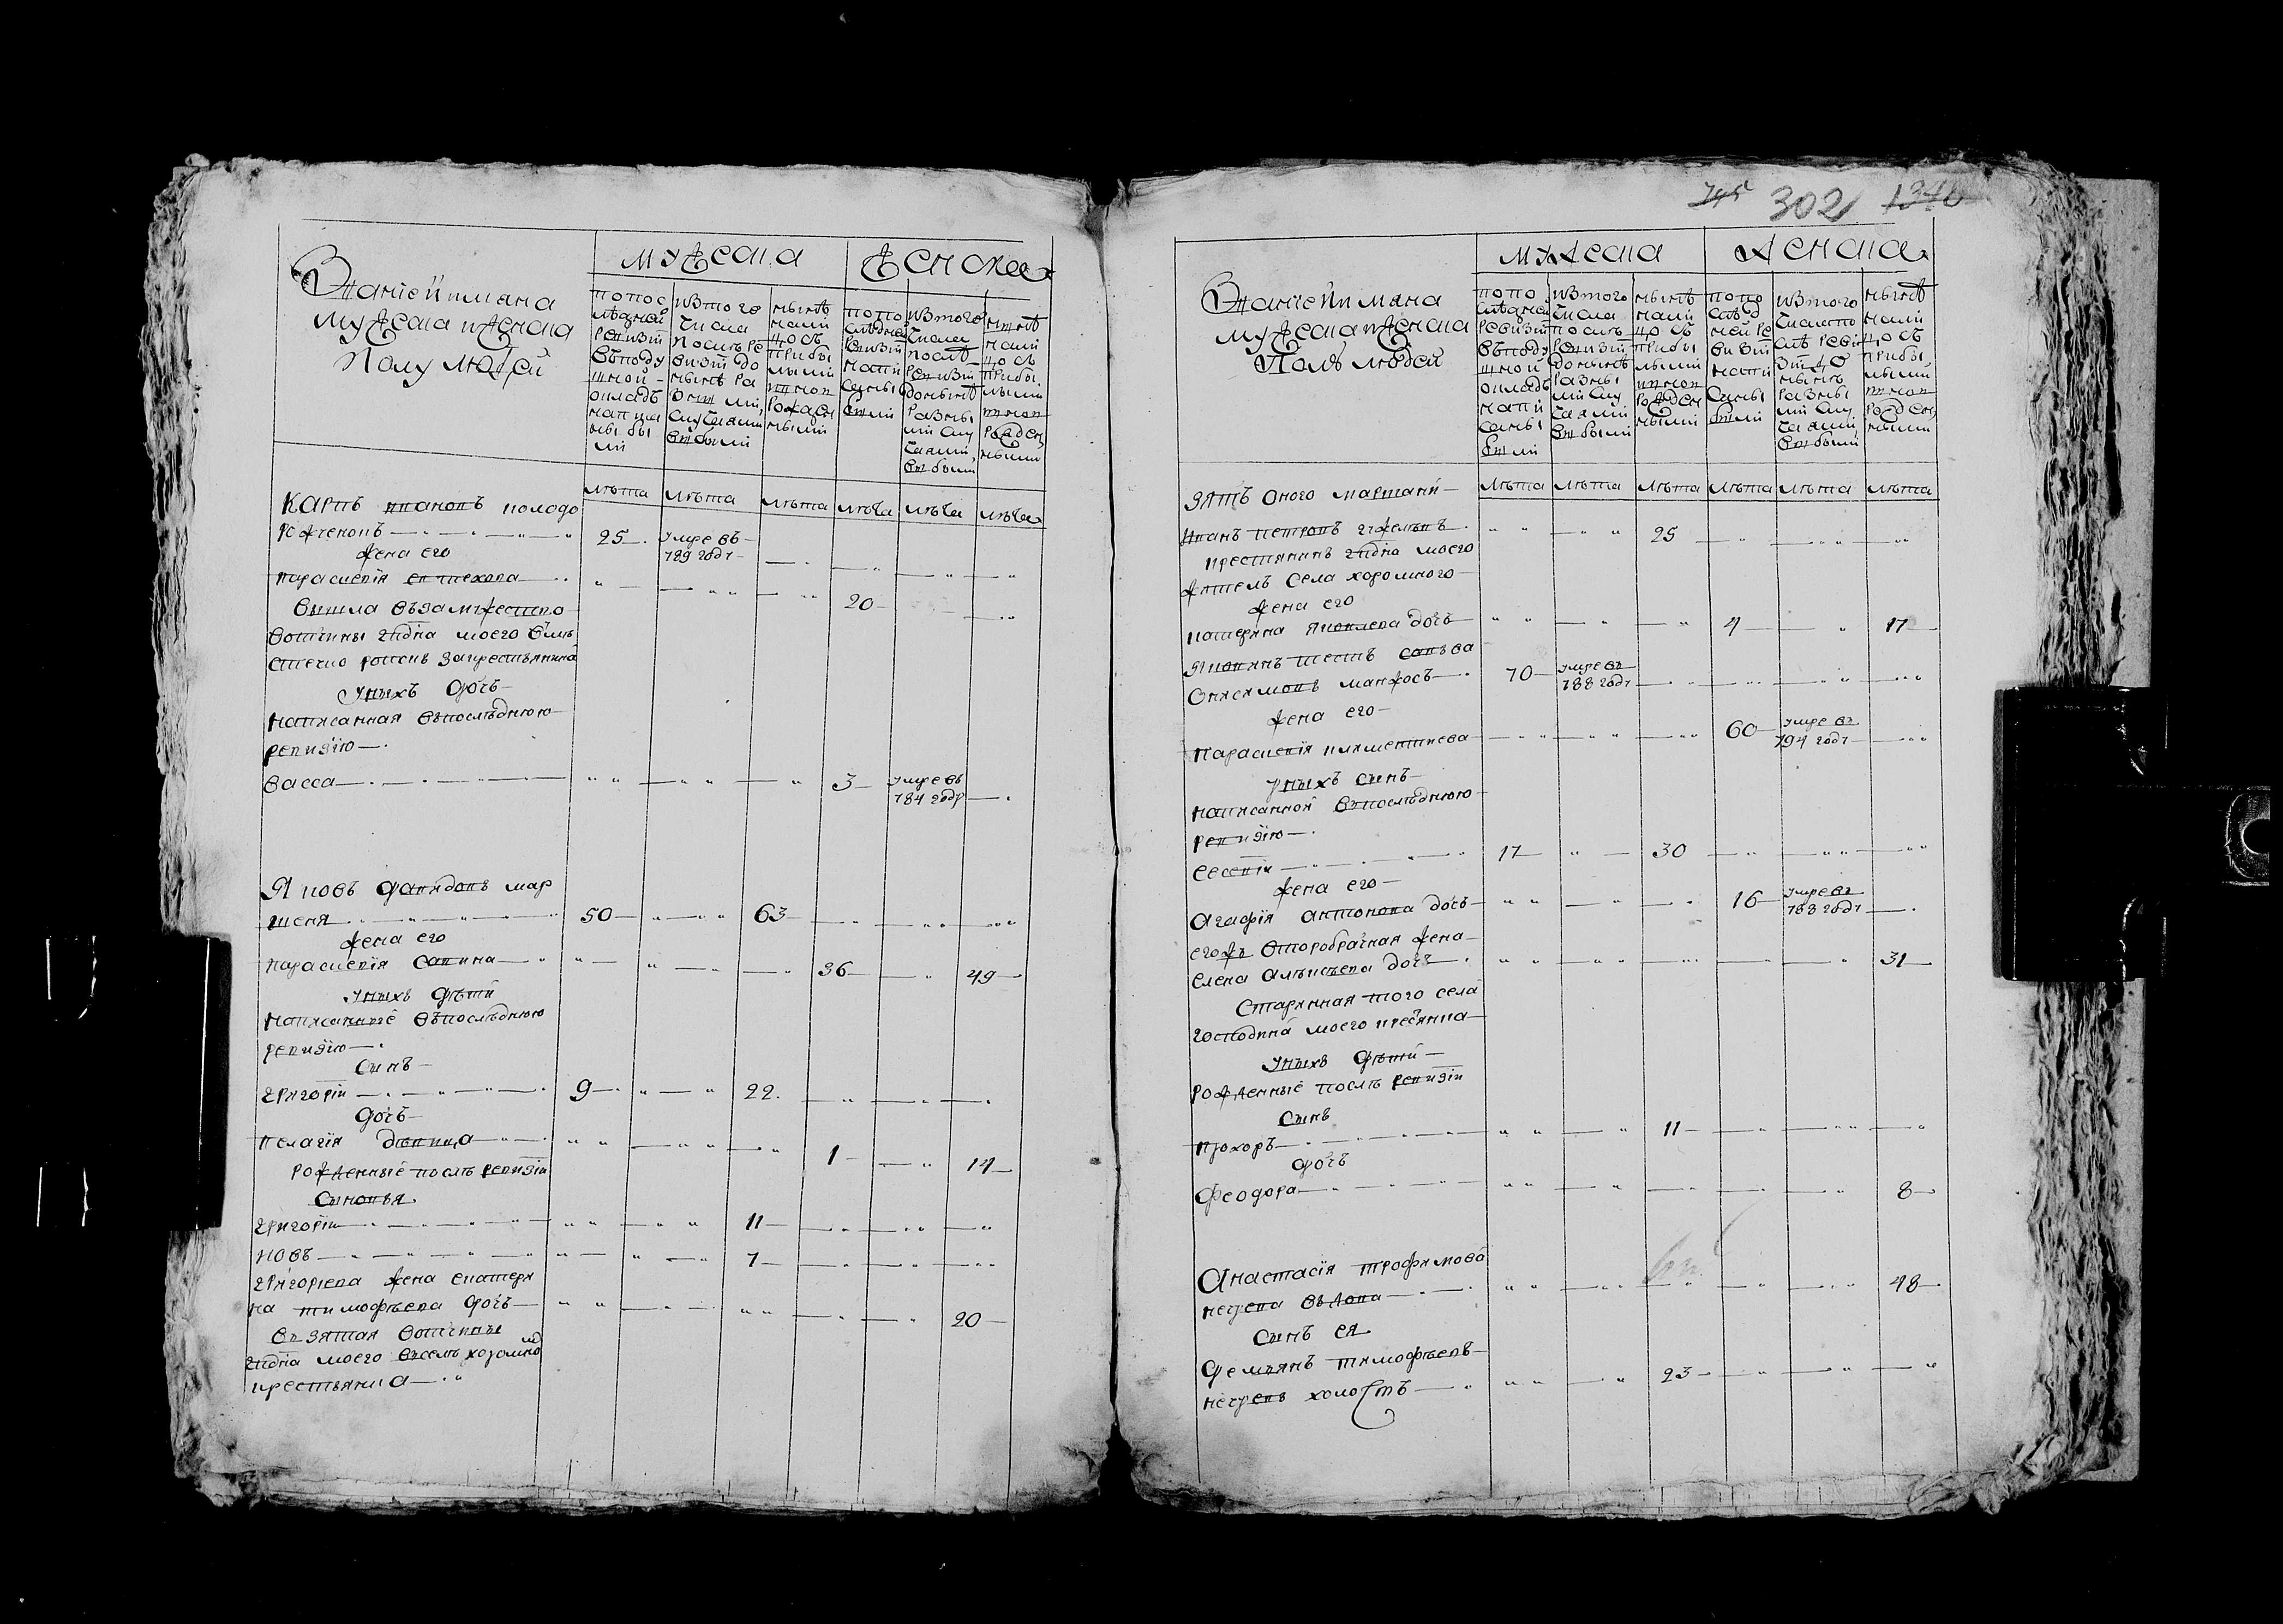 302
Званіе и имяна
мужеска и женска
полу людей
мужеска
женска
по пос
лѣдней
ревизіи
въ поду
шной
окладѣ
написа
ны бы
ли
из того
числа
послѣ ре
визіи до
нынѣ ра
зными
случаями
выбыли
нынѣ
нали
цо съ
прибы
лыми
и внов
рожден
ными
по по
слѣдней
ревизіи
напи
саны
были
из того
числа
послѣ
ревизіи
до нынѣ
разны
ми слу
чаями
выбыли
нынѣ
нали
цо съ
прибы
лыми
и внов
рожден
ными
лѣта лѣта лѣта лѣта лѣта лѣта
Карпъ ивановъ колодо
рожченокъ 25 умре въ
789 годѣ
жена его
параскевія 20
вышла въ замужество
вотчины гпдна моего
за крестьянина
у ныхъ дочь
написанная въ послѣднюю
ревизію
васса 3 умре въ
784 годѣ
Яковъ давыдовъ мар
ченя 50 63
жена его
параскевія савина 36 49
у ныхъ дѣти
написанные въ послѣднюю
ревизію
сынъ
григоріи 9 22
дочь
пелагія девица 1 14
рожденные послѣ ревизіи
сыновья
григоріи 11
иовъ 7
григорьева жена екатери
на тимофѣева дочь 20
взятая вотчины
гпдна моего въ селѣ хоромно
крестьянка
Званіе и имяна
мужеска и женска
полъ людей
мужеска
женска
по по
слѣдней
ревизіи
въ поду
шной
окладѣ
напи
саны
были
из того
числа
послѣ
ревизіи
до нынѣ
разны
ми слу
чаями
выбыли
нынѣ
нали
цо съ
прибы
лыми
и внов
рожден
ными
по по
слѣд
ней ре
визіи
напи
саны
были
из того
числа по
слѣ реви
зіи до
нынѣ
разны
ми слу
чаями
выбыли
нынѣ
нали
цо съ
прибы
лыми
и внов
рожден
ными
лѣта лѣта лѣта лѣта лѣта лѣта
зять оного марчени
иванъ петровъ 25
крестьянинъ гпдна моего
житель села хоромного
жена его
катерина яковлева дочь 4 17
яковлнъ тесть савва
онисимовъ манжосъ 70 умре въ
788 годѣ
жена его
параскевія климентиева 60 умре въ
794 годѣ
у ныхъ сынъ
написанной въ послѣднюю
ревизію
евсевіи 17 30
жена его
агафія антонова дочь 16 умре въ
788 годѣ
егожъ второбрачная жена
елена алексѣева дочь 31
старинная того села
господина моего кресянка
у ныхъ дѣти
рожденные послѣ ревизіи
сынъ
прохоръ 11
дочь
феодора 8
Анастасія трофимова
вдова 48
сынъ ея
демьянъ тимофѣевъ
холостъ 23